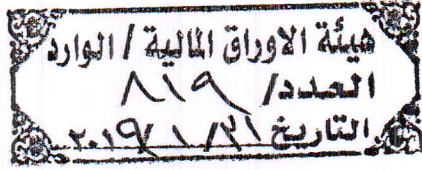 هيئة الاوراق المالية / الوارد
العدد/ ٨١٩
التاريخ ٣١/ ١ /٢٠١٩